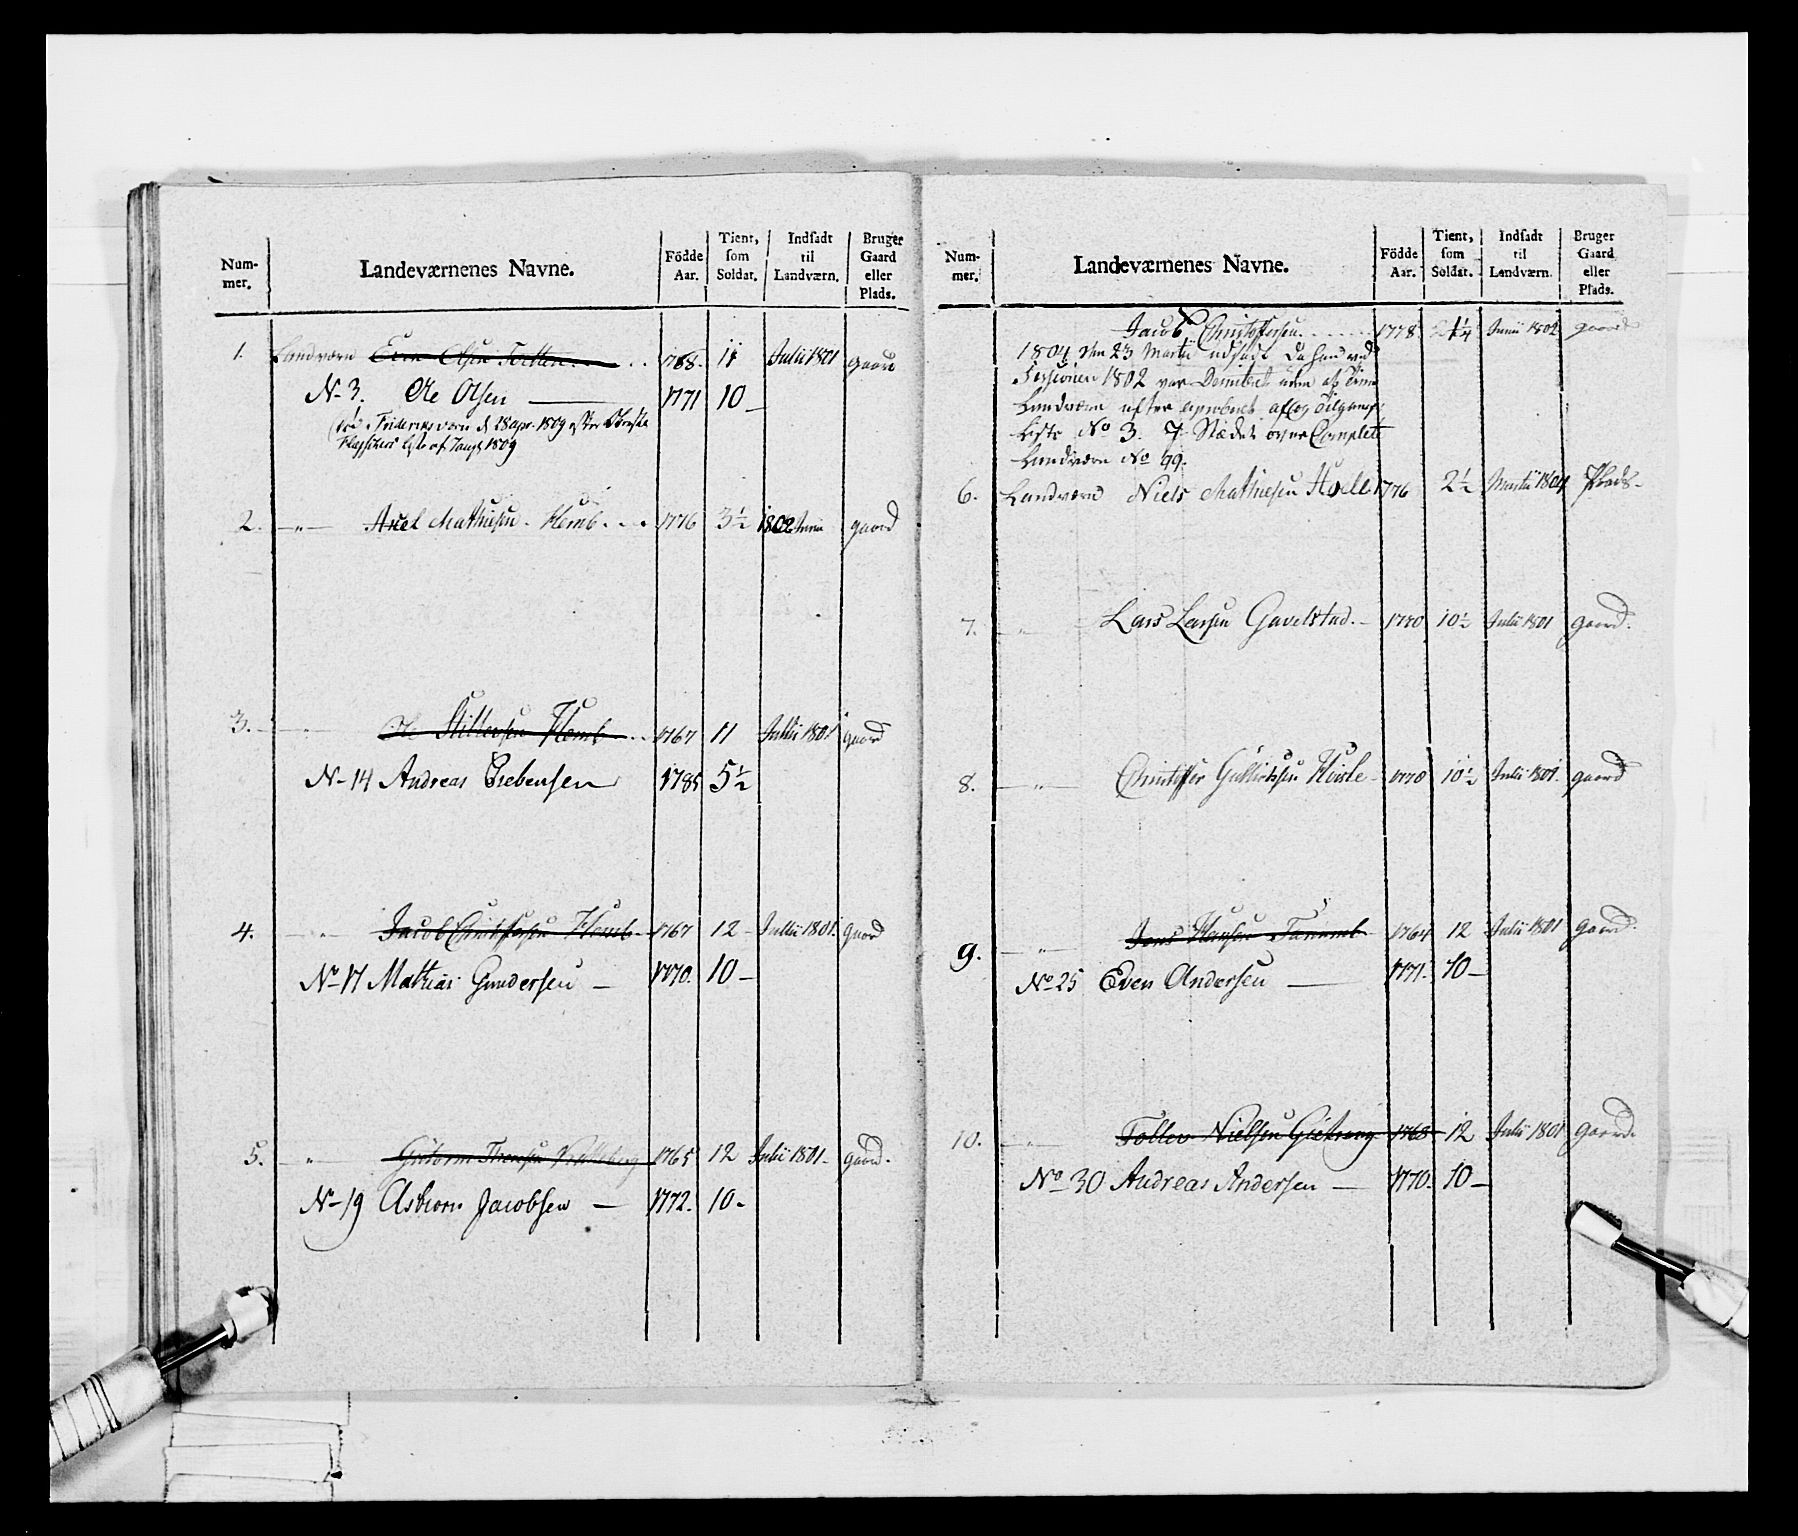 Num-
mer.
Landeværnenes Navne.
Födde
Aar.
Tient,
som
Soldat.
Indsadt
til
Landværn.
Bruger
Gaard
eller
Plads.
1. Landværn Even Olsen 1768. 11 Julii 1801 gaard
N- 3. Ole Olsen 1771 10 –
død i Frideriksværn d 28 apr. 1809 efter
Liste af 1809
2. –〃– Axel Mathiesen Klomb 1776 3½ 1802 Junii gaard
3. –〃– Ole Klomb 1767 11 Julii 1801 gaard
N- 14 Andreas 1785 5½
4. –〃– Jacob Christophersen Klomb 1767 12 – Julii 1801. gaard
No- 17 Mathias Gundersen – 1770. 10 –
5. 〃 Guttorm 1765 12 Julii 1801 – gaard.
No- 19 Asbiorn Jacobsen – 1772. 10 –
Num-
mer.
Landeværnenes Navne.
Födde
Aar.
Tient,
som
Soldat.
Indsadt
til
Landværn.
Bruger
Gaard
eller
Plads.
Jacob Christophersen 1778. Junii 1802 gaard
1804 den 23 Martii udsadt da hand ved
Sessionen 1802 var
Landværn efter
Liste No 3. Complett
Landværn No 99.
6. Landværn Niels Mathiesen 1776 2½ Martii 1804 Plads –
7. –〃– Lars Larsen Gavelstad. – 1770 10½ Julii 1801 gaard.
8. –〃– Christoffer 1770 10½ Julii 1801. gaard
9. –〃– Hansen 1764 12 Julii 1801 gaard.
No- 25 Even Andersen 1771. 10 –
10. –〃– Tollev Nielsen 1768 12 Julii 1801 gaard.
No- 30 Andreas Andersen – 1770. 10 –